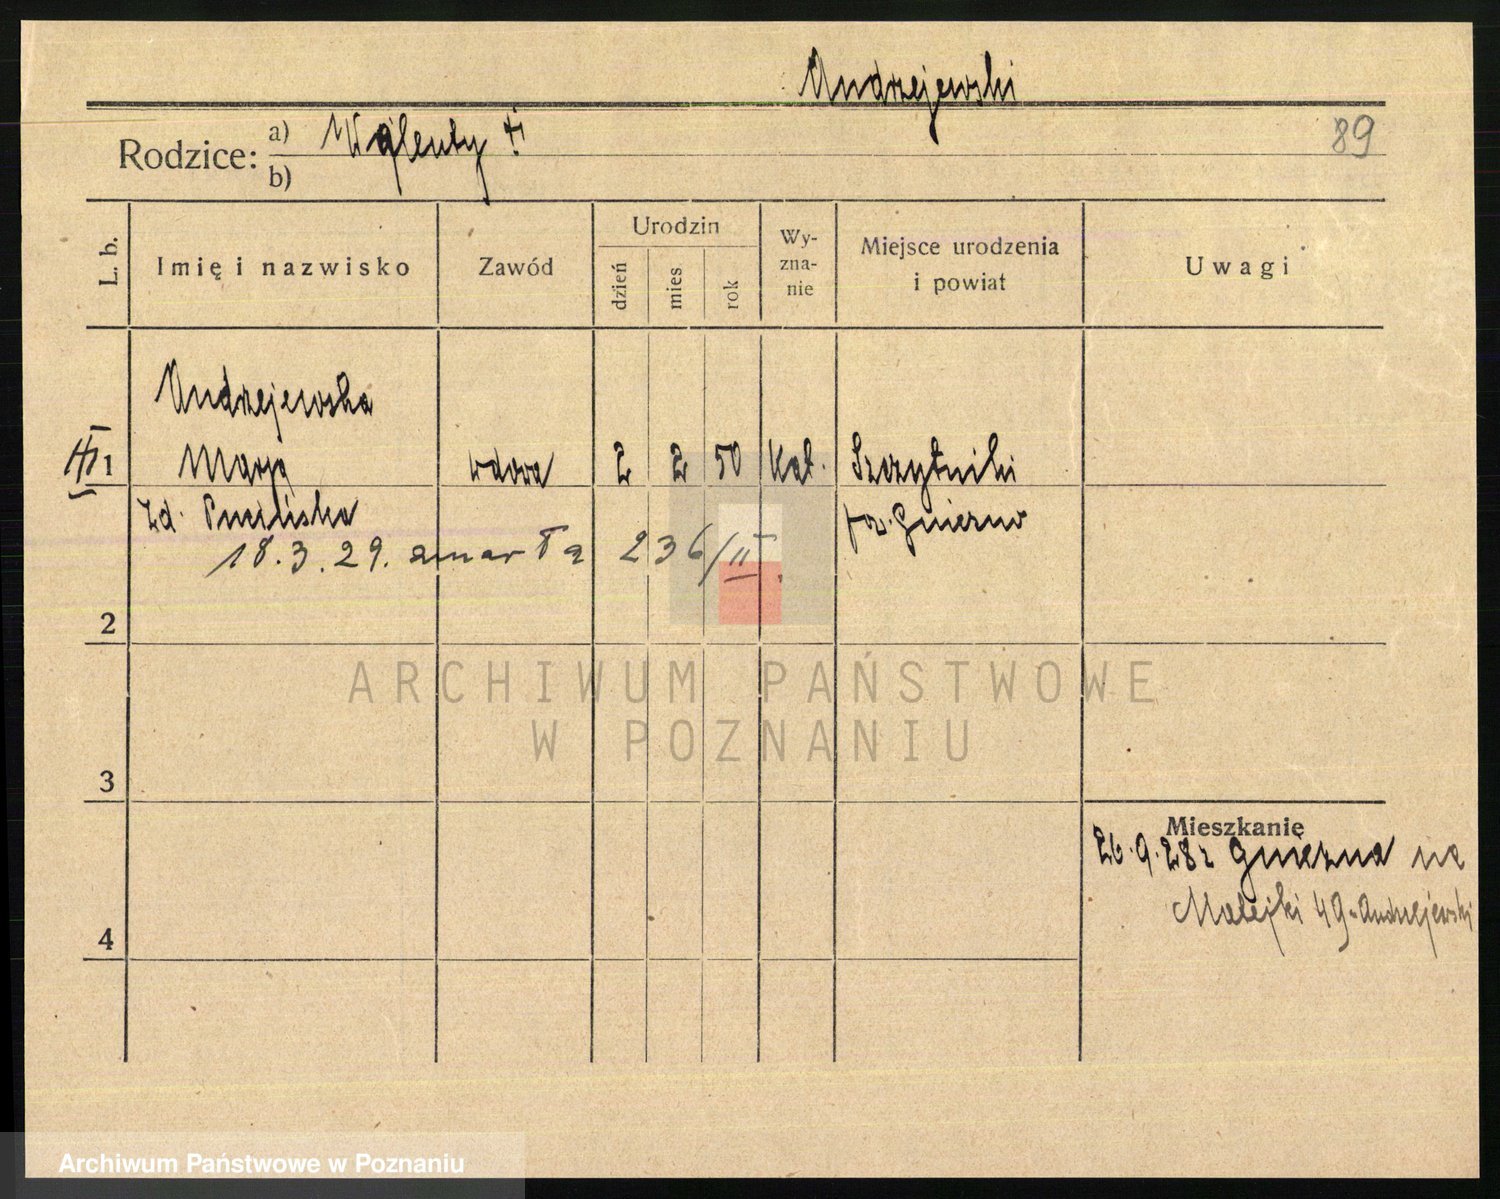 Andrzejewski
89
Rodzice: a) Walenty
b)
L. b.
Imię i nazwisko
Zawód
Urodzin
dzień
mies
rok
Wy-
zna-
nie
Miejsce urodzenia
i powiat
Uwagi
Andrzejewska
III 1 Marja wdowa 2 2 50 kat. Szczytniki
zd. pow. Gniezno
18.3.29. zmarła 236/II.
2
3
4
Mieszkanie
26.9.28 z Gniezna
Matejki 49 Andrzejewski
ARCHIWUM PAŃSTWOWE
W POZNANIU
Archiwum Państwowe w Poznaniu